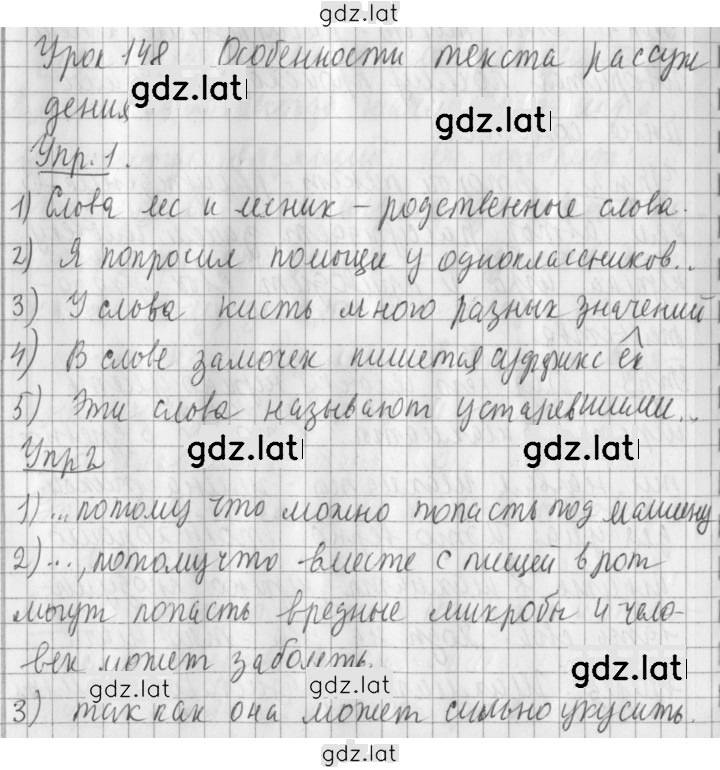 gdz.lat
Урок 148 Особенности текста рассуж
gdz.lat
дения
gdz.lat
Упр. 1.
1) Слова лес и лесник – родственные слова.
2) Я попросил помощи у одноклассников...
3) У слова кисть много разных значений
4) В слове замочек пишется суффикс ек
5) Эти слова называют устаревшими...
Упр 2
gdz.lat gdz.lat
1) ...потому что можно попасть под машину
2) ..., потому что вместе с пищей в рот
могут попасть вредные микробы и чело-
век может заболеть.
gdz.lat
gdz.lat gdz.lat
3) так как она может сильно укусить.
gdz.lat